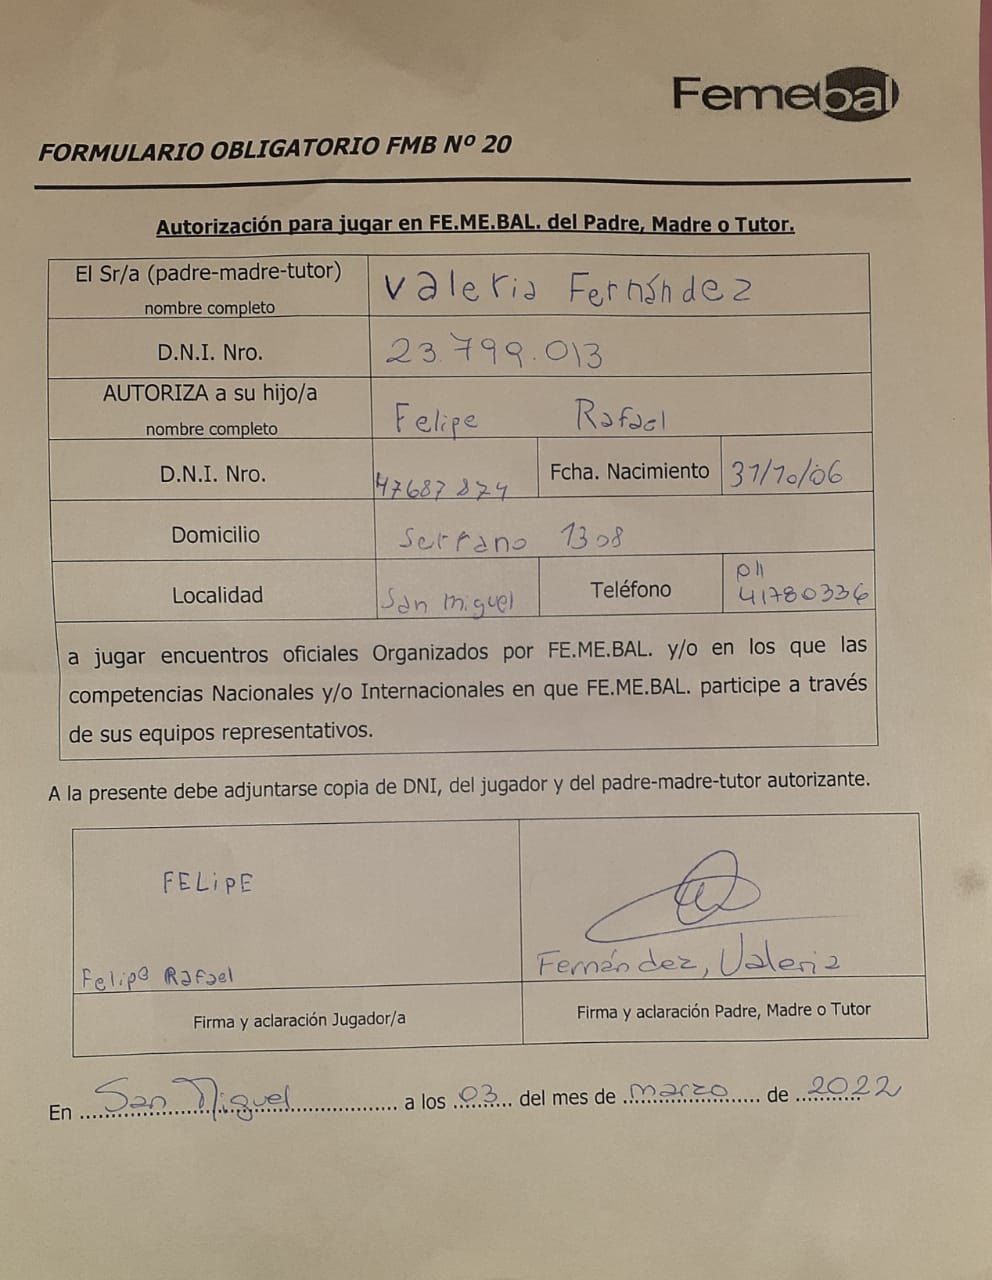 Femebal
FORMULARIO OBLIGATORIO FMB Nº 20
Autorización para jugar en FE.ME.BAL. del Padre, Madre o Tutor.
El Sr/a (padre-madre-tutor)
nombre completo
Valeria Fernández
D.N.I. Nro.
23.799.013
AUTORIZA a su hijo/a
nombre completo
Felipe Rafael
D.N.I. Nro.
47687874
Fcha. Nacimiento
31/10/06
Domicilio
Serrano 1308
Localidad
San Miguel
Teléfono
pll
41780336
a jugar encuentros oficiales Organizados por FE.ME.BAL. y/o en los que las
competencias Nacionales y/o Internacionales en que FE.ME.BAL. participe a través
de sus equipos representativos.
A la presente debe adjuntarse copia de DNI, del jugador y del padre-madre-tutor autorizante.
FELIPE
Felipe Rafael
Fernández, Valeria
Firma y aclaración Jugador/a
Firma y aclaración Padre, Madre o Tutor
En San Miguel a los 03 del mes de marzo de 2022